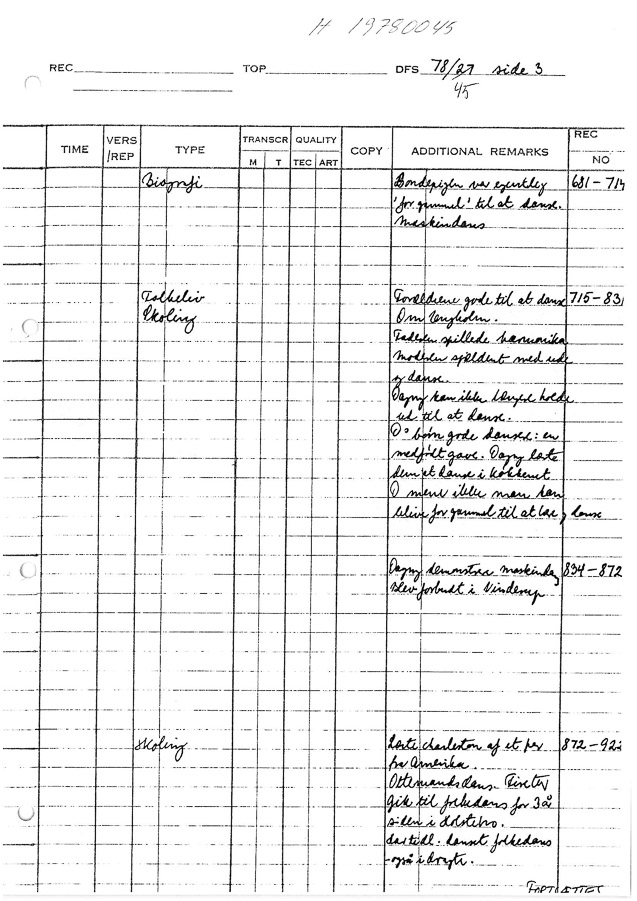 H 19780045
REC TOP DFS 78/27 side 3
45
TIME VERS /REP TYPE TRANSCR QUALITY COPY ADDITIONAL REMARKS REC NO
M T TEC ART
Biografi Bondepigen var egentlig 681-714
'for gammel' til at danse.
Maskindans
Folkeliv Forældrene gode til at danse 715-83
Skoling Om
Faderen spillede harmonika
Moderen sjældent med ude
og danse.
Dagny kan ikke længere holde
ud til at danse.
D's børn gode dansere: en
medfødt gave. Dagny lærte
dem at danse i køkkenet
D mener ikke man kan
blive for gammel til at lære og danse
Dagny demonstrerer maskindans 834-872
Blev forbudt i Vinderup
Skoling Lærte charleston af et par 872-922
fra Amerika.
Ottemandsdans. Firetur
Gik til folkedans for 3 år
siden i Holstebro.
danset folkedans
- også i dragt.
FORTSÆTTES